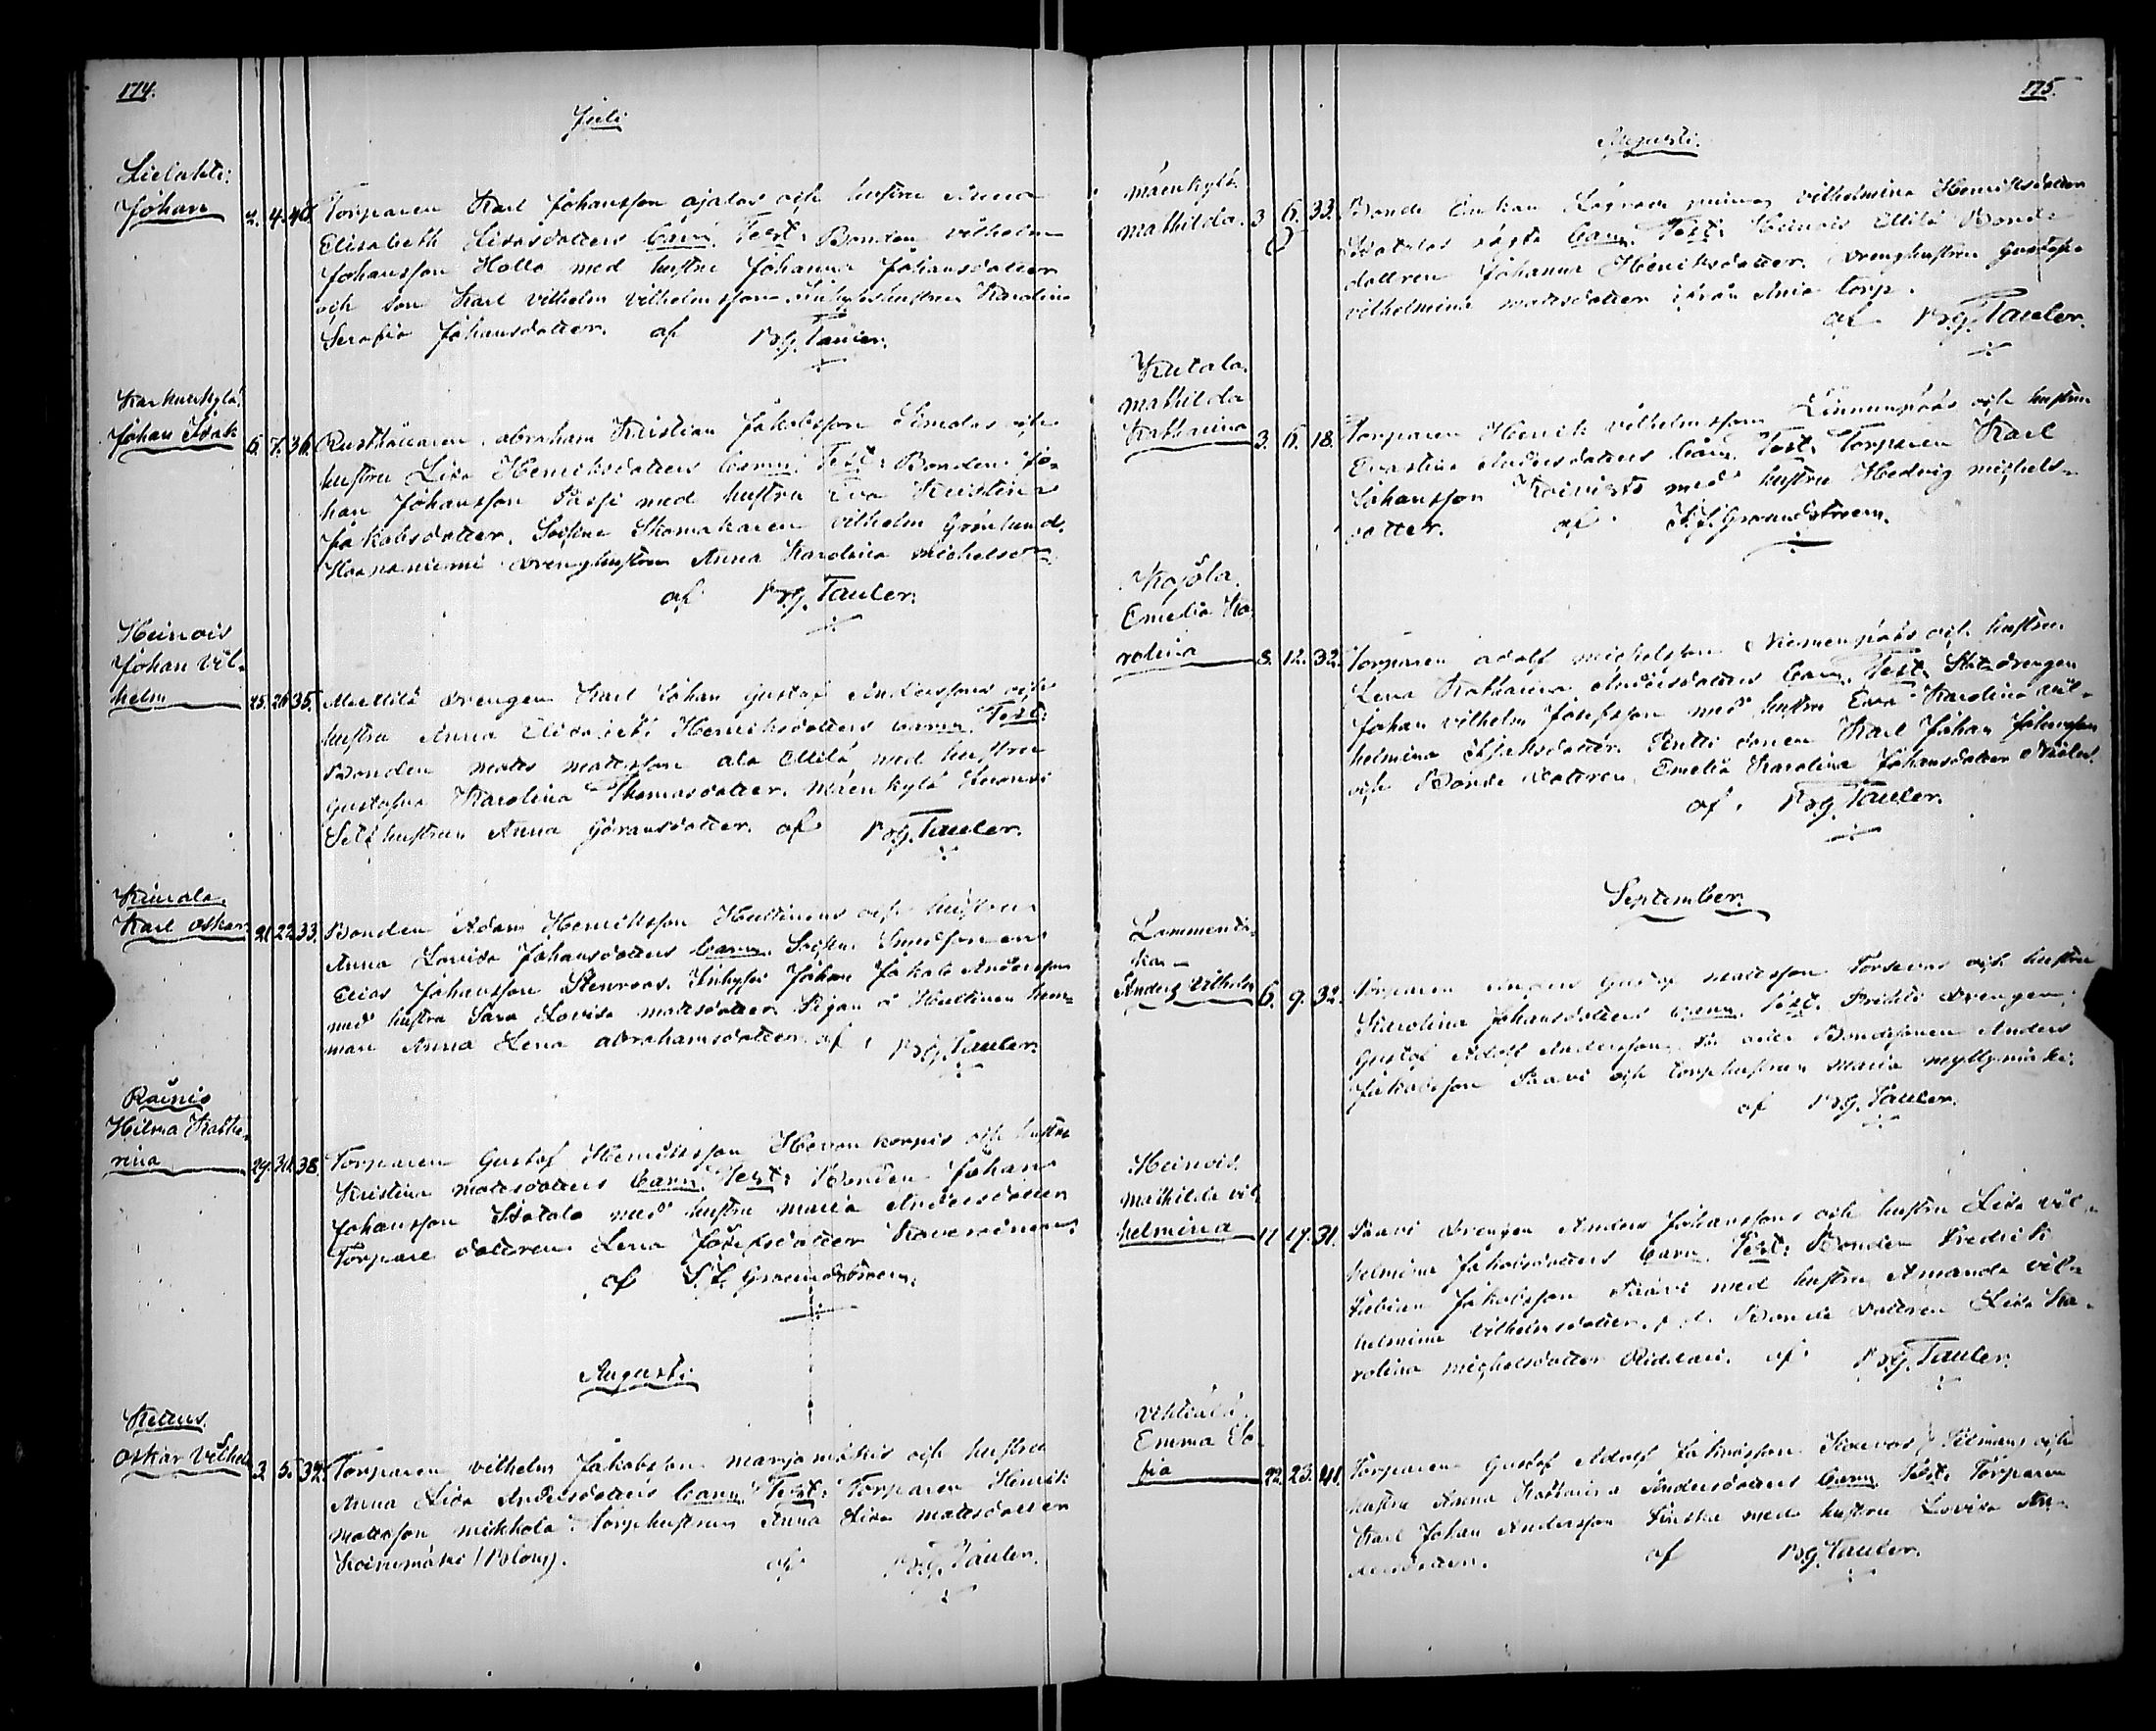 174.
Juli
Lielahti:
Johan 2. 4. 40. Torparen Karl Johansson Ajalas och hustru Anna
Elisabeth Lisasdotters barn. Test: Bonden Vilhelm
Johansson Hollo med hustru Johanna Johansdotter
och son Karl Vilhelm Vilhelmsson. Inhyseshustrun Karolina
Serafia Johansdotter. af B.G. Tauler.
Karhunkylä.
Johan Isak 6. 7. 36. Rusthållaren Abraham Kristian Jakobsson Simolas och
hustru Lisa Henriksdotters barn. Test: Bonden Jo-
han Johansson Passi med hustru Eva Kristina
Jakobsdotter. Sockne Skomakaren Vilhelm Grönlund.
drenghustrun Anna Karolina Michelsdr.
af B.G. Tauler.
Heinois
Johan Vil-
helm 25. 26. 35. drengen Karl Johan Gustaf Anderssons och
hustru Anna Elisabeth Henriksdotters barn. Test:
Bonden Matts Mattsson Ala Ellilä med hustru
Gustafva Karolina Thomasdotter. Mäenkylä
hustrun Anna Göransdotter. af B.G. Tauler.
Karl Oskar 21. 22. 33. Bonden Adam Henriksson Huttinens och hustrun
Anna Lovisa Johansdotters barn. Sockne Smedsonen
Elias Johansson Stenroos. Inhyses Johan Jakob Andersson
med hustru Sara Lovisa Mattsdotter. Pigan å Huttinen hem-
man Anna Lena Abrahamsdotter. af B.G. Tauler.
Räinis
Hilma Katha-
rina 29. 30. 38. Torparen Gustaf Henriksson Hevonkorpis och hustru
Kristina Mattsdotters barn. Test: Bonden Johan
Johansson Isotalo med hustru Maria Andersdotter
Torpare dottren Lena Josefsdotter
af S.L. Grœndstrœm.
Augusti
Oskar Vilhelm 3. 5. 32. Torparen Vilhelm Jakobsson Marjamäkis och hustru
Anna Lisa Andersdotters barn. Test: Torparen Henrik
Mattsson Mikkola. Torphustrun Anna Lisa Mattsdotter
Koivumäki /Blom/. af B.G. Tauler.
175.
Augusti.
Mäenkylä.
Mathilda. 3. 6. 33. Bonde Enkan Vilhelmina Henriksdotter
barn. Test: Heinois Ellilä Bonde
dottren Johanna Henriksdotter. drenghustrun Gustafva
Vilhelmina Mattsdotter ifrån torp.
af B.G. Tauler.
Kutala.
Mathilda
Katharina 3. 6. 18. Torparen Henrik Vilhelmsson Linnunpääs och hustru
Andersdotters barn. Test: Torparen Karl
Johansson Koivisto med hustru Hedvig Michels-
dotter. af S.L. Grœndstrœm.
Kojola.
Emelia Ka-
rolina 8. 12. 32. Torparen Adolf Michelsson Niemenpääs och hustru
Lena Katharina Andersdotters barn. Test: drengen
Johan Vilhelm Josefsson med hustru Eva Karolina Vil-
helmina Isaksdotter. Antti sonen Karl Johan Johansson
och Bonde dottren Emelia Karolina Johansdotter
af B.G. Tauler.
September.
Lammenti-
ka
Anders Vilhelm 6. 9. 32. Torparen Anders Gustaf Mattsson och hustru
Karolina Johansdotters barn. Test. drengen
Gustaf Adolf Andersson. Bondesonen Anders
Jakobsson Paavi och torphustrun Maria Myllymäki.
af B.G. Tauler.
Heinois.
Mathilda Vil-
helmina 11. 17. 31. Paavi drengen Anders Johanssons och hustru Lisa Vil-
helmina Jakobsdotters barn. Test: Bonden Fredrik
Fabian Jakobsson Paavi med hustru Amanda Vil-
helmina Vilhelmsdotter, f.d. Bonde dottren Lisa Ka-
rolina Michelsdotter af B.G. Tauler.
Emma So-
fia 22. 23. 41. Torparen Gustaf Adolf Jakobsson och
hustru Anna Katharina Andersdotters barn. Test: Torparen
Karl Johan Andersson med hustru Lovisa An-
dersdotter. af B.G. Tauler.